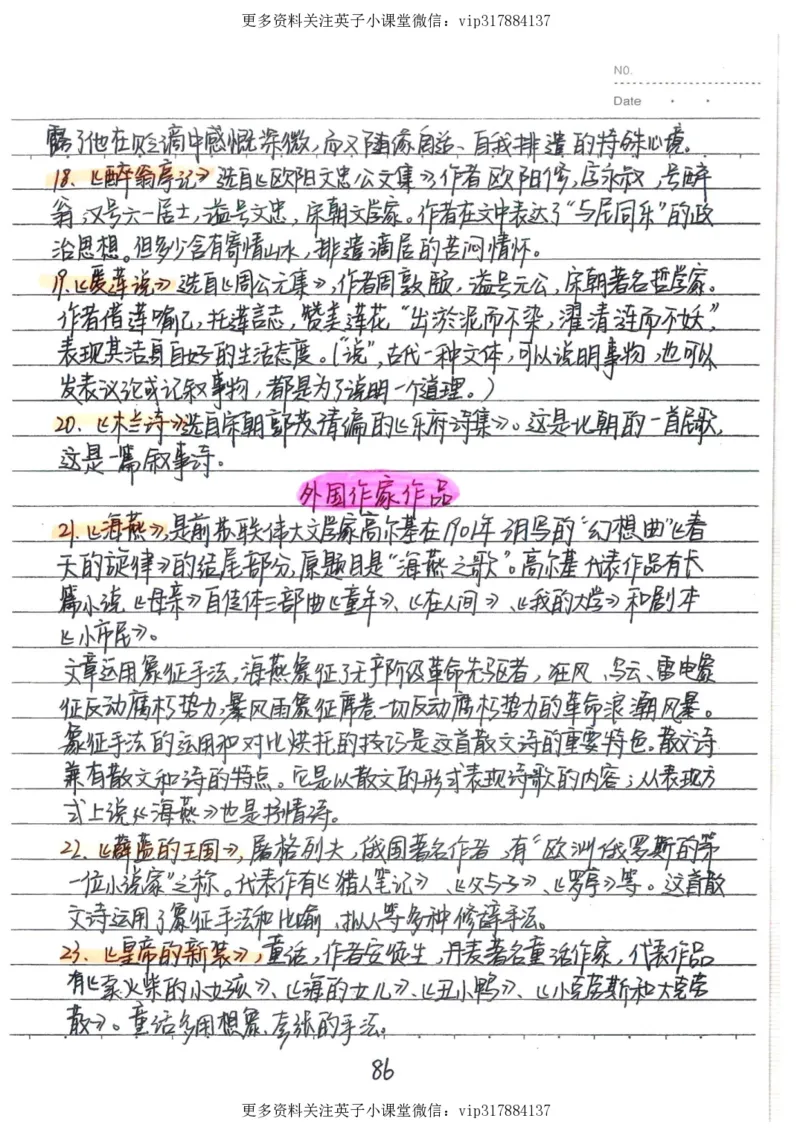 更多资料关注英子小课堂微信：vip317884137
NO.
Date
露了他在贬谪中感慨深微,而又随缘自适、自我排遣的特殊心境。
18.《醉翁亭记》选自《欧阳文忠公文集》,作者欧阳修,字永叔,号醉
翁,又号六一居士,谥号文忠,宋朝文学家。作者在文中表达了“与民同乐”的政
治思想。但多少含有寄情山水,排遣谪居的苦闷情怀。
19.《爱莲说》选自《周公元集》,作者周敦颐,谥号元公,宋朝著名哲学家。
作者借莲喻己,托莲言志,赞美莲花“出淤泥而不染,濯清涟而不妖”,
表现其洁身自好的生活态度。(“说”,古代一种文体,可以说明事物,也可以
发表议论或记叙事物,都是为了说明一个道理。)
20.《木兰诗》选自宋朝郭茂倩编的《乐府诗集》。这是北朝的一首民歌,
这是一篇叙事诗。
外国作家作品
21.《海燕》,是前苏联伟大文学家高尔基在1901年3月写的“幻想曲”《春
天的旋律》的结尾部分,原题目是“海燕之歌”。高尔基代表作品有长
篇小说《母亲》自传体三部曲《童年》、《在人间》、《我的大学》和剧本
《小市民》。
文章运用象征手法,海燕象征了无产阶级革命先驱者,狂风、乌云、雷电象
征反动腐朽势力,暴风雨象征席卷一切反动腐朽势力的革命浪潮风暴。
象征手法的运用和对比烘托的技巧是这首散文诗的重要特色。散文诗
兼有散文和诗的特点。它是以散文的形式表现诗歌的内容;从表现方
式上说《海燕》也是抒情诗。
22.《蔚蓝的王国》,屠格列夫,俄国著名作者,有“欧洲俄罗斯的第
一位小说家”之称。代表作有《猎人笔记》、《父与子》、《罗亭》等。这首散
文诗运用了象征手法和比喻、拟人等多种修辞手法。
23.《皇帝的新装》,童话,作者安徒生,丹麦著名童话作家,代表作品
有《卖火柴的小女孩》、《海的女儿》、《丑小鸭》、《小克劳斯和大克劳
散》。童话多用想象、夸张的手法。
86
更多资料关注英子小课堂微信：vip317884137